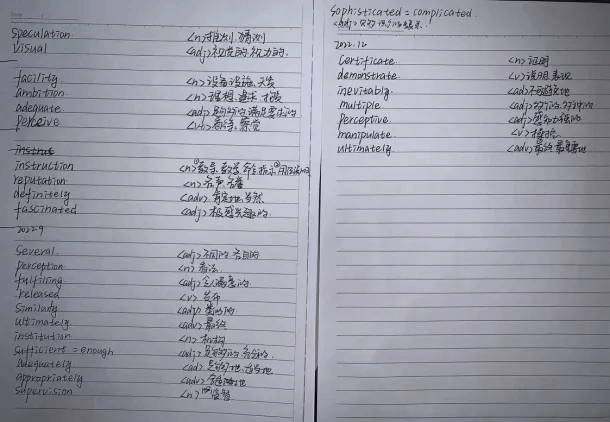 speculation <n>推测、猜测
visual <adj>视觉的、视力的
facility <n>设备设施、天赋
ambition <n>理想、追求、才能
adequate <adj>足够的、满足要求的
perceive <v>看待、察觉
instruction
reputation <n>名声、名誉
definitely <adv>肯定地、当然
fascinated <adj>极感兴趣的
2022.9
Several <adj>不同的、各自的
perception <n>看法
fulfilling <adj>令人满意的
released <v>发布
similarly
ultimately <adv>最终
institution <n>机构
sufficient = enough <adj>足够的、充分的
adequately
appropriately <adv>合适地
supervision <n>监督
Sophisticated = complicated.
2022.12
Certificate <n>证明
demonstrate <v>说明、表现
inevitably <adv>不可避地
multiple
perceptive
manipulate <v>操控
ultimately <adv>最终